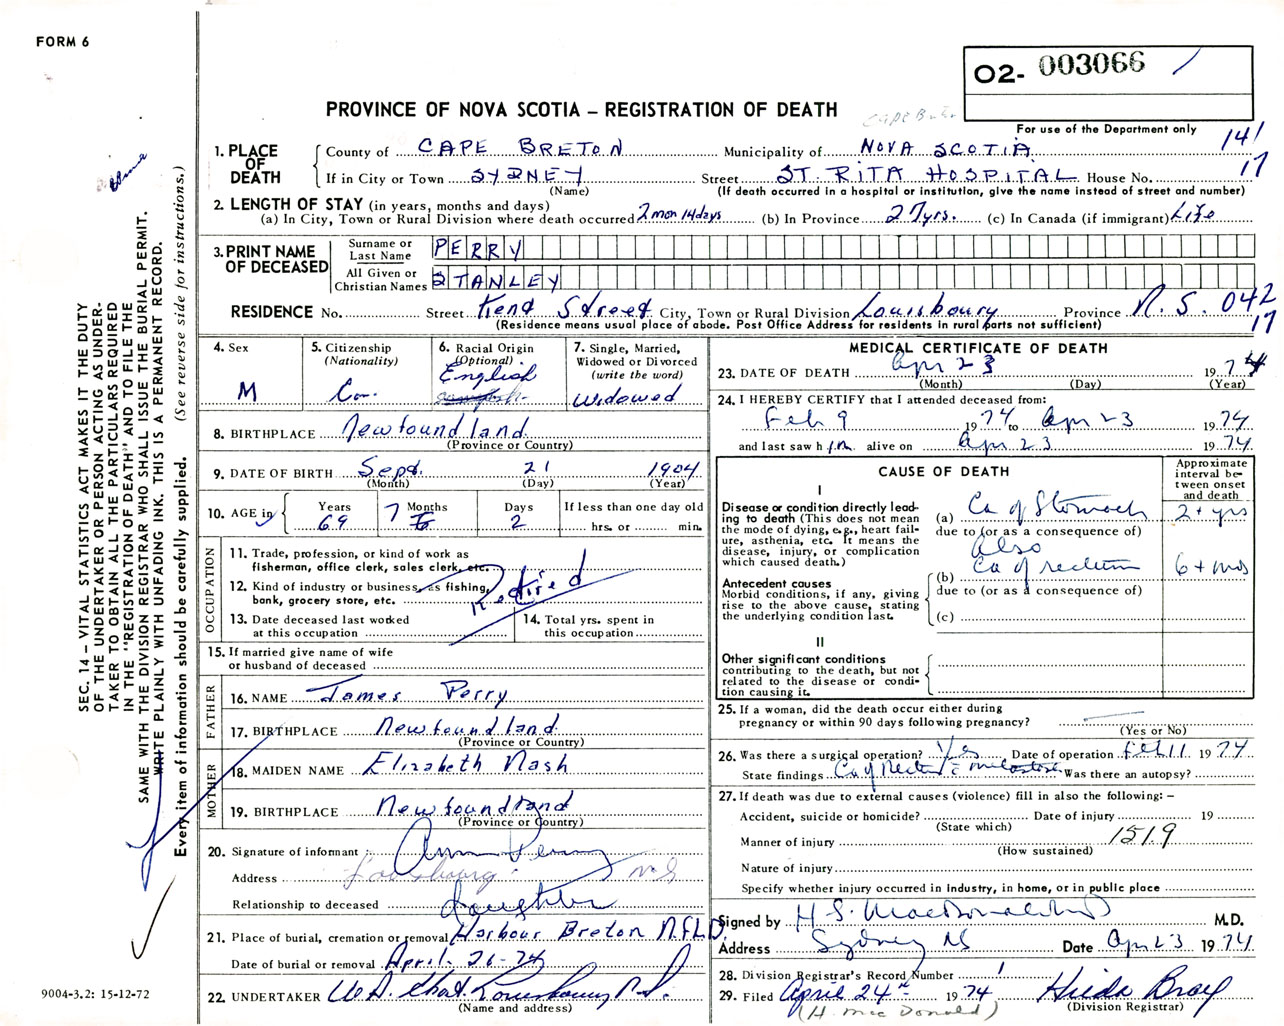 FORM 6
O2- 003066
PROVINCE OF NOVA SCOTIA – REGISTRATION OF DEATH
For use of the Department only
141
17
1. PLACE OF DEATH
County of CAPE BRETON Municipality of NOVA SCOTIA
If in City or Town SYDNEY Street ST. RITA HOSPITAL House No.
(Name) (If death occurred in a hospital or institution, give the name instead of street and number)
2. LENGTH OF STAY (in years, months and days)
(a) In City, Town or Rural Division where death occurred 2 mon 14 days (b) In Province 27 yrs. (c) In Canada (if immigrant) Life
3. PRINT NAME OF DECEASED
Surname or Last Name PERRY
All Given or Christian Names STANLEY
RESIDENCE No. Street Kend Street City, Town or Rural Division Louisbourg Province N.S. 042
(Residence means usual place of abode. Post Office Address for residents in rural parts not sufficient) 17
4. Sex M
5. Citizenship (Nationality) Can.
6. Racial Origin (Optional) English
7. Single, Married, Widowed or Divorced (write the word) Widowed
8. BIRTHPLACE Newfoundland
(Province or Country)
9. DATE OF BIRTH Sept. 21 1904
(Month) (Day) (Year)
10. AGE in Years 69 Months 7 Days 2 If less than one day old hrs. or min.
OCCUPATION
11. Trade, profession, or kind of work as fisherman, office clerk, sales clerk, etc.
12. Kind of industry or business, as fishing, bank, grocery store, etc.
Retired
13. Date deceased last worked at this occupation
14. Total yrs. spent in this occupation
15. If married give name of wife or husband of deceased
FATHER
16. NAME James Perry
17. BIRTHPLACE Newfoundland
(Province or Country)
MOTHER
18. MAIDEN NAME Elizabeth Nash
19. BIRTHPLACE Newfoundland
(Province or Country)
20. Signature of informant Ann Perry
Address Louisbourg NS
Relationship to deceased daughter
21. Place of burial, cremation or removal Harbour Breton NFLD.
Date of burial or removal April. 26-74
22. UNDERTAKER Louisbourg N.S.
(Name and address)
MEDICAL CERTIFICATE OF DEATH
23. DATE OF DEATH Apr 23 1974
(Month) (Day) (Year)
24. I HEREBY CERTIFY that I attended deceased from:
Feb 9 1974 to Apr 23 1974
and last saw him alive on Apr 23 1974
CAUSE OF DEATH
Approximate interval between onset and death
I
Disease or condition directly leading to death (This does not mean the mode of dying, e.g., heart failure, asthenia, etc. It means the disease, injury, or complication which caused death.)
(a) Ca of Stomach 2+ yrs
due to (or as a consequence of)
Also
Antecedent causes
Morbid conditions, if any, giving rise to the above cause, stating the underlying condition last.
(b) Ca of rectum 6+ mos
due to (or as a consequence of)
(c)
II
Other significant conditions
contributing to the death, but not related to the disease or condition causing it.
25. If a woman, did the death occur either during pregnancy or within 90 days following pregnancy?
(Yes or No)
26. Was there a surgical operation? Yes Date of operation Feb 11 1974
State findings Ca of Rectum c metastases Was there an autopsy?
27. If death was due to external causes (violence) fill in also the following: –
Accident, suicide or homicide? Date of injury 19
(State which)
Manner of injury 151.9
(How sustained)
Nature of injury
Specify whether injury occurred in industry, in home, or in public place
Signed by H S MacDonald M.D.
Address Sydney NS Date Apr 23 1974
28. Division Registrar's Record Number 1
29. Filed April 24th 1974 Hilda Bray
(H. MacDonald) (Division Registrar)
SEC. 14 – VITAL STATISTICS ACT MAKES IT THE DUTY
OF THE UNDERTAKER OR PERSON ACTING AS UNDER-
TAKER TO OBTAIN ALL THE PARTICULARS REQUIRED
IN THE "REGISTRATION OF DEATH" AND TO FILE THE
SAME WITH THE DIVISION REGISTRAR WHO SHALL ISSUE THE BURIAL PERMIT.
WRITE PLAINLY WITH UNFADING INK. THIS IS A PERMANENT RECORD.
Every item of information should be carefully supplied. (See reverse side for instructions.)
9004-3.2: 15-12-72